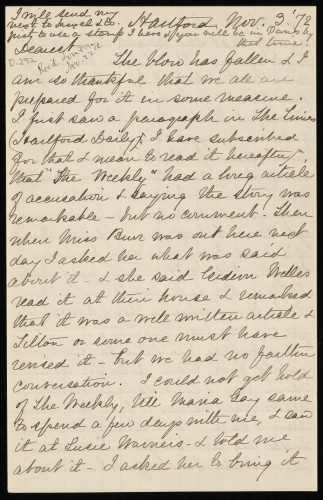 I will send my
next to Munroe & Co. Hartford Nov. 3. '72
just to use a stamp I have & you will be in Paris by
that time.
Dearest
D-292
Rec'd London
Nov. 22d
The blow has fallen & I
am so thankful that we all are
prepared for it in some measure.
I just saw a paragraph in The Times
(Hartford Daily), I have subscribed
for that & mean to read it hereafter,
that "The Weekly" had a long article
of accusation & saying the story was
remarkable - but no comment. Then
when Miss Burr was out here next
day I asked her what was said
about it - & she said Gideon Welles
read it at their house & remarked
that it was a well written article &
Tilton or some one must have
revised it - but we had no farther
conversation. I could not get hold
of The Weekly, till Mana Gay came
to spend a few days with me, & saw
it at Susie Warners - & told me
about it - I asked her to bring it